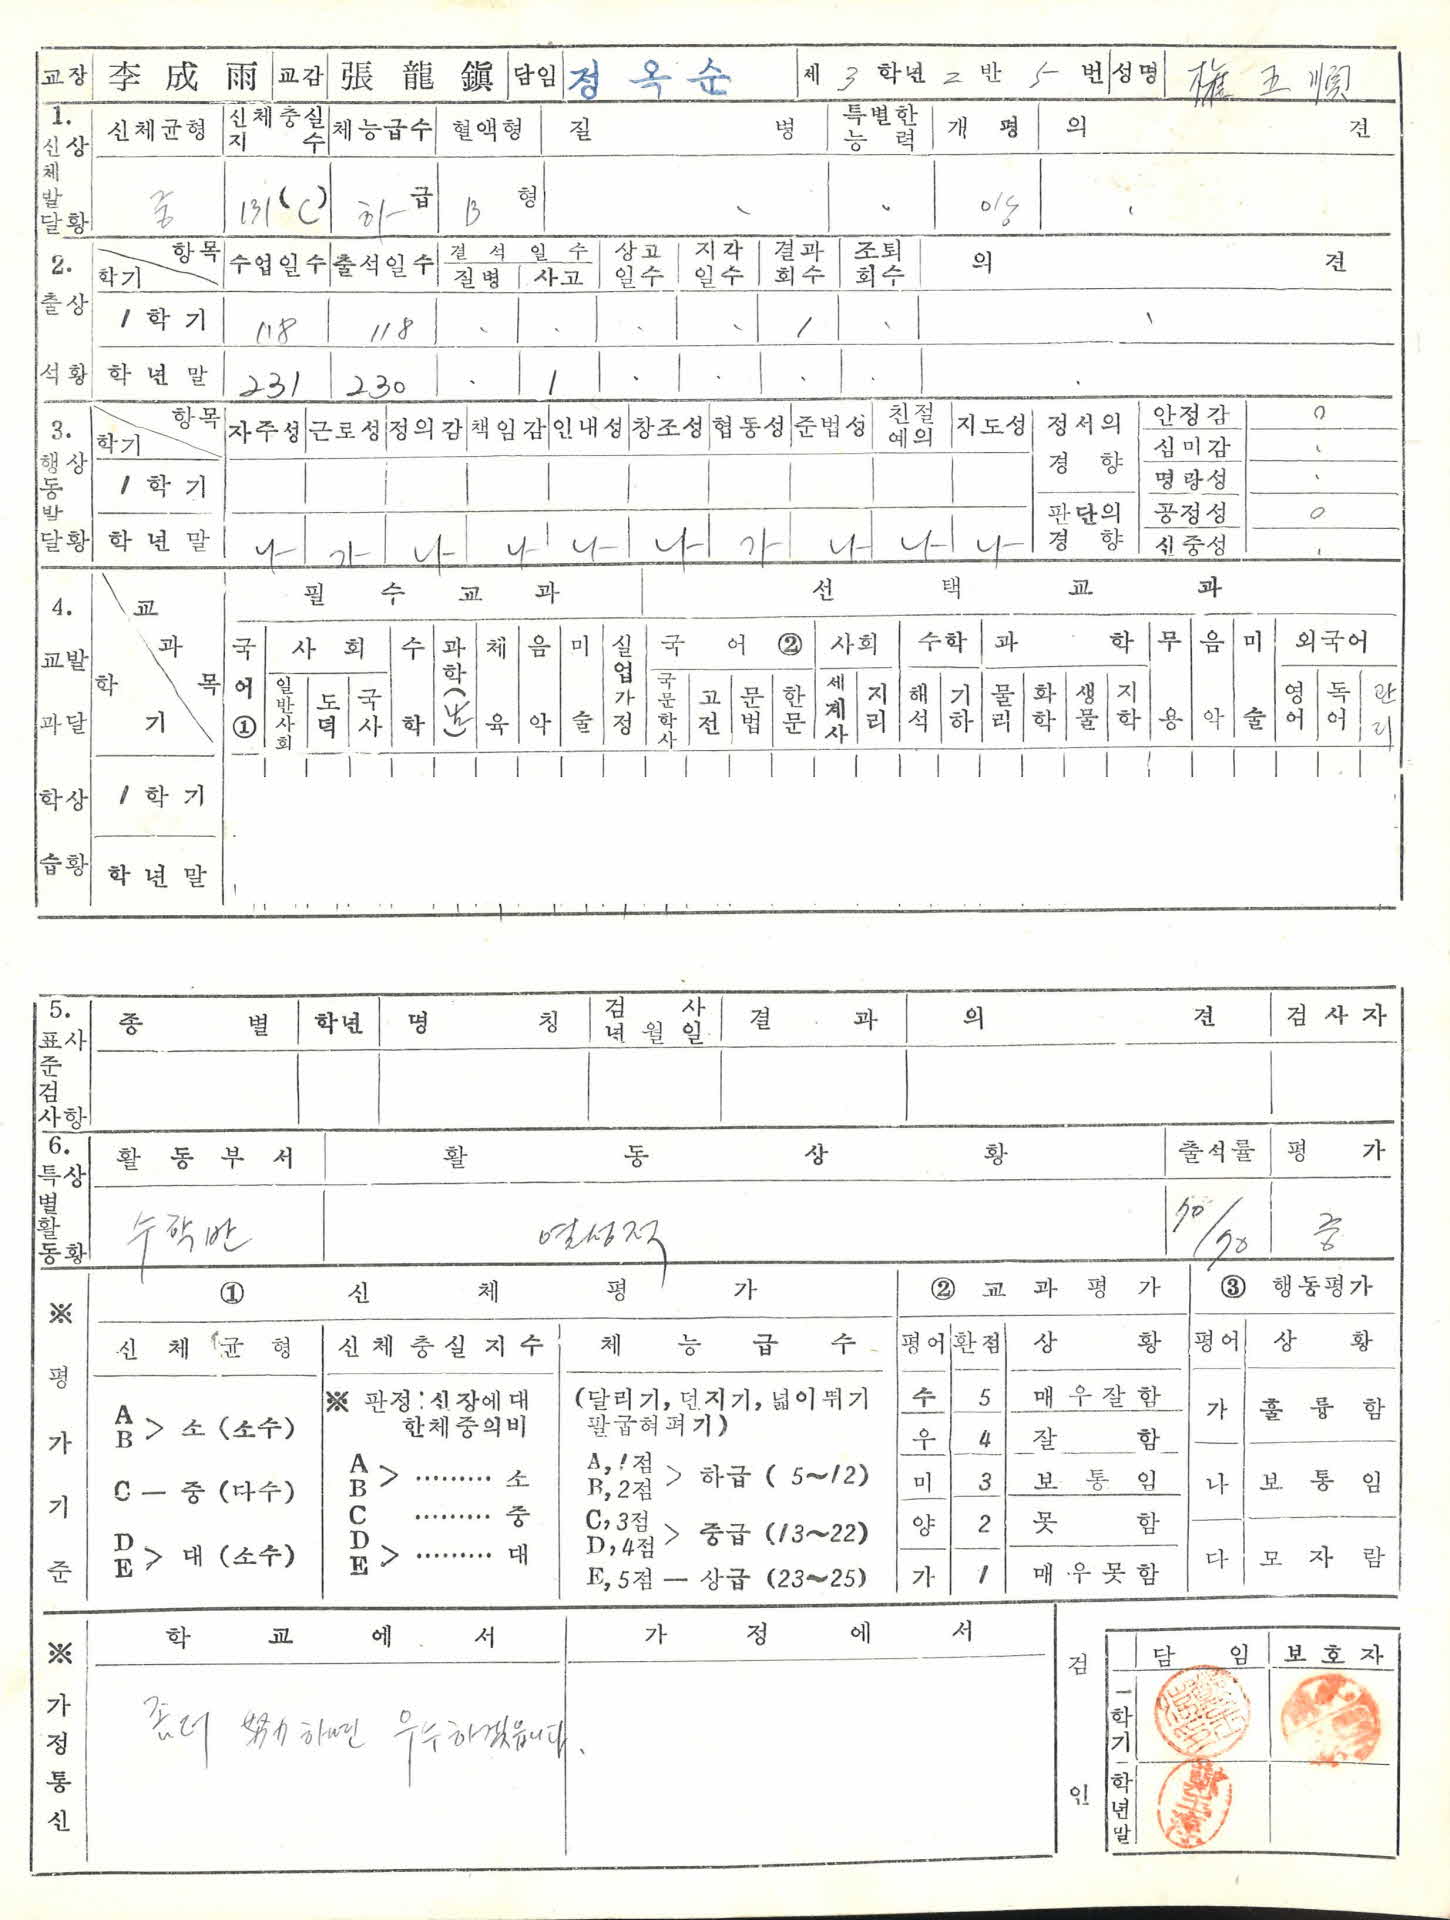 교장 李成雨 교감 張龍鎭 담임 정옥순 제 3 학년 2 반 5 번 성명 權五順
1. 신체발달상황
신체균형 신체충실지수 체능급수 혈액형 질병 특별한 능력 개평 의견
중 131 (C) 하급 B형 이상
2. 출석상황
항목 학기 수업일수 출석일수 결석일수 질병 사고 상고일수 지각일수 결과회수 조퇴회수 의견
1학기 118 118 1
학년말 231 230 1
3. 행동발달상황
항목 학기 자주성 근로성 정의감 책임감 인내성 창조성 협동성 준법성 친절예의 지도성 정서의 경향 안정감 ○
심미감
명랑성
판단의 경향 공정성 ○
신중성
1학기
학년말 나 가 나 나 나 나 가 나 나 나
4. 교과학습발달상황
교과목 학기 필수교과 선택교과
국어① 사회 일반사회 도덕 국사 수학 과학(남) 체육 음악 미술 실업가정 국어② 국문학사 고전 문법 한문 사회 세계사 지리 수학 해석 기하 과학 물리 화학 생물 지학 무용 음악 미술 외국어 영어 독어 관리
1학기
학년말
5. 표준검사사항
종별 학년 명칭 검사년월일 결과 의견 검사자
6. 특별활동상황
활동부서 활동상황 출석률 평가
수학반 열성적 70/70 중
※ 평가기준
① 신체평가 ② 교과평가 ③ 행동평가
신체균형 신체충실지수 체능급수 평어 환점 상황 평어 상황
A B > 소 (소수)
C — 중 (다수)
D E > 대 (소수)
※ 판정: 신장에 대한 체중의 비
A B > ········· 소
C ········· 중
D E > ········· 대
(달리기, 던지기, 넓이뛰기 팔굽혀펴기)
A, 1점 B, 2점 > 하급 (5~12)
C, 3점 D, 4점 > 중급 (13~22)
E, 5점 — 상급 (23~25)
수 5 매우잘함
우 4 잘함
미 3 보통임
양 2 못함
가 1 매우못함
가 훌륭함
나 보통임
다 모자람
※ 가정통신
학교에서 가정에서
좀더 努力하면 우수하겠읍니다.
검인
담임 보호자
一학기
一학년말